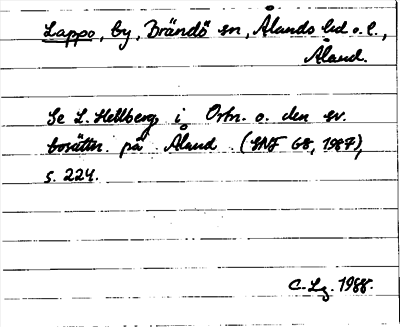 Lappo, by, Brändö sn, Ålands hd o. l.,
Åland.
Se L. Hellberg i Ortn. o. den sv.
bosättn. på Åland (SNF 68, 1987),
s. 224.
C-Lg. 1988.